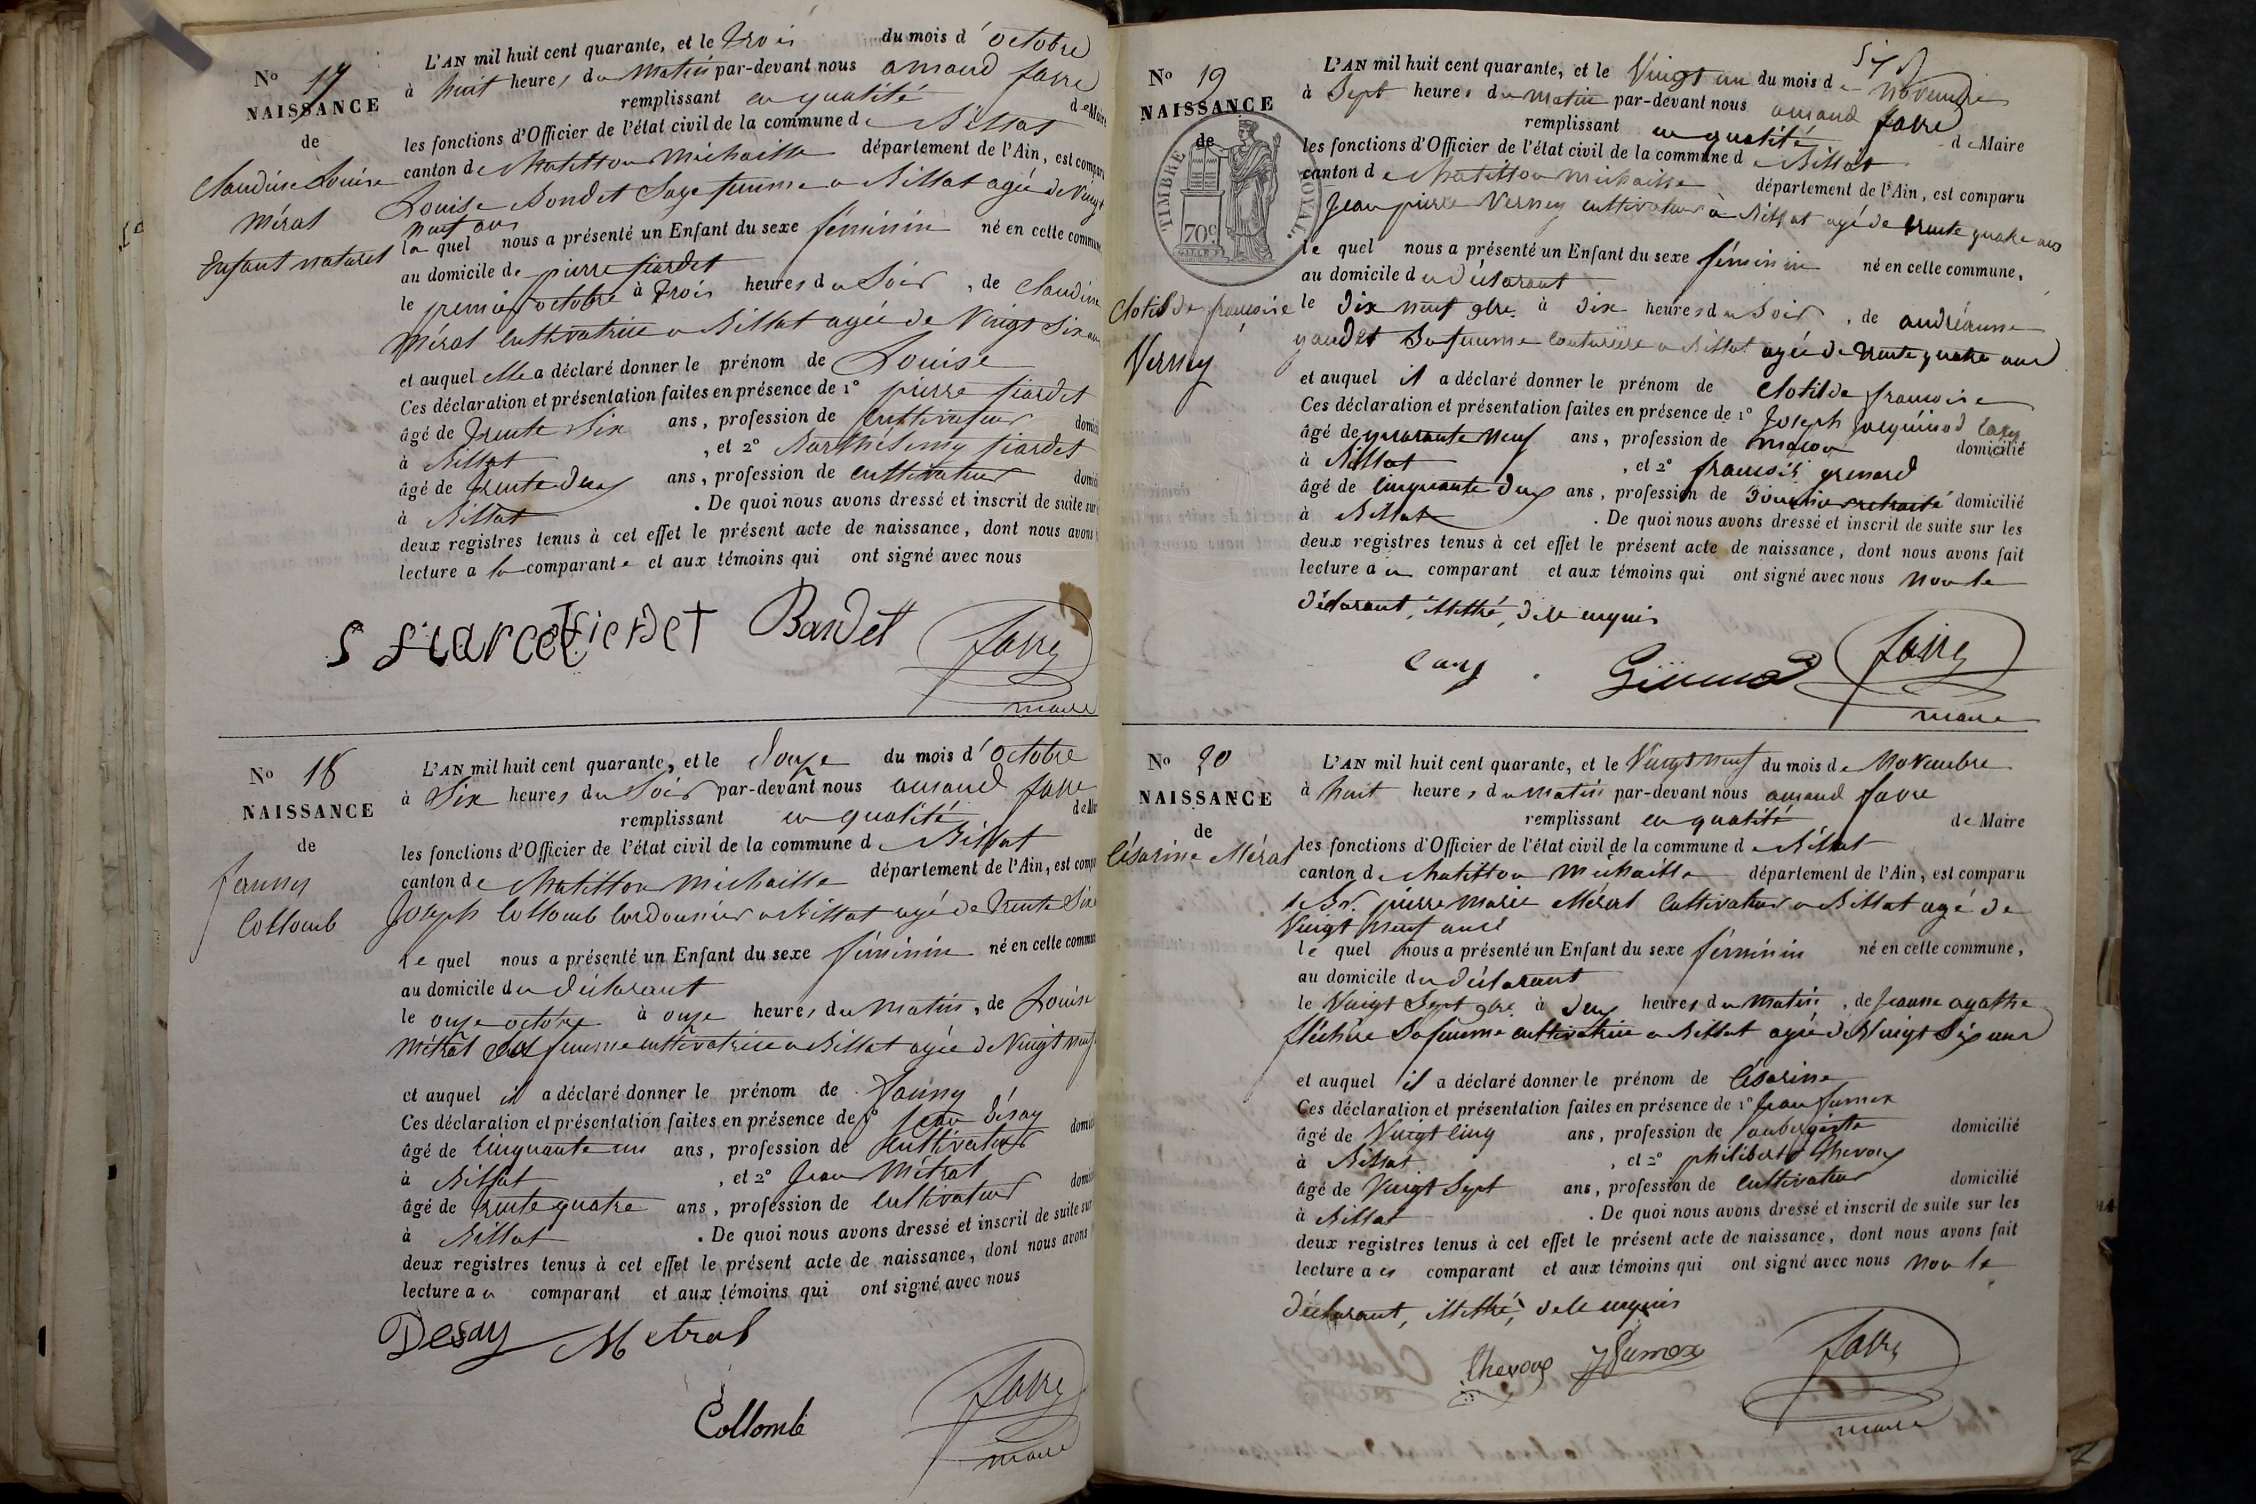 No 17
NAISSANCE
de
Claudine Louise
Mérat
Enfant naturel
L'AN mil huit cent quarante, et le trois du mois d'octobre
à huit heures du matin par-devant nous amand favre
remplissant en qualité de Maire
les fonctions d'Officier de l'état civil de la commune de Billiat
canton de Chatillon Michaille département de l'Ain, est compar
Louise Bondet Sage femme à Billiat agée de Vingt
neuf ans
laquel nous a présenté un Enfant du sexe féminin né en cette commune
au domicile de pierre fiardet
le premier octobre à trois heures du Soir, de Claudine
Mérat Cultivatrice à Billiat agée de Vingt Six ans
et auquel elle a déclaré donner le prénom de Louise
Ces déclaration et présentation faites en présence de 1o pierre fiardet
âgé de trente Six ans, profession de Cultivateur domici
à Billiat, et 2o Barthélemy fiardet
âgé de trente deux ans, profession de cultivateur domici
à Billiat. De quoi nous avons dressé et inscrit de suite sur
deux registres tenus à cet effet le présent acte de naissance, dont nous avons
lecture a la comparante et aux témoins qui ont signé avec nous
Bondet favre
maire
No 18
NAISSANCE
de
fanny
Collomb
L'AN mil huit cent quarante, et le Douze du mois d'octobre
à Six heures du Soir par-devant nous amand favre
remplissant en qualité de Mai
les fonctions d'Officier de l'état civil de la commune de Billiat
canton de Chatillon Michaille département de l'Ain, est comp
Joseph Collomb Cordonnier à Billiat agé de trente Six
le quel nous a présenté un Enfant du sexe féminin né en cette commun
au domicile du déclarant
le onze octobre à onze heures du Matin, de Louise
Métral Sa femme cultivatrice à Billiat agée de Vingt neuf
et auquel il a déclaré donner le prénom de fanny
Ces déclaration et présentation faites en présence de 1o Jean Désay
âgé de Cinquante un ans, profession de Cultivateur domici
à Billiat, et 2o Jean Métral
âgé de trente quatre ans, profession de Cultivateur domici
à Billiat. De quoi nous avons dressé et inscrit de suite sur
deux registres tenus à cet effet le présent acte de naissance, dont nous avons
lecture au comparant et aux témoins qui ont signé avec nous
Desay Metral
Collomb favre
maire
No 19
NAISSANCE
de
TIMBRE ROYAL.
70c
Clotilde françoise
Verney
L'AN mil huit cent quarante, et le Vingt un du mois de novembre
à Sept heures du matin par-devant nous amand favre
remplissant en qualité de Maire
les fonctions d'Officier de l'état civil de la commune de Billiat
canton de Chatillon Michaille département de l'Ain, est comparu
Jean pierre Verney cultivateur à Billiat agé de trente quatre ans
le quel nous a présenté un Enfant du sexe féminin né en cette commune,
au domicile du déclarant
le Dix neuf 9bre à Dix heures du Soir, de andréanne
gaudet Sa femme Couturière à Billiat agée de trente quatre ans
et auquel il a déclaré donner le prénom de Clotilde françoise
Ces déclaration et présentation faites en présence de 1o Joseph Jacquinod
âgé de quarante neuf ans, profession de maçon domicilié
à Billiat, et 2o françois
âgé de Cinquante Deux ans, profession de Douanier retraité domicilié
à Billiat. De quoi nous avons dressé et inscrit de suite sur les
deux registres tenus à cet effet le présent acte de naissance, dont nous avons fait
lecture au comparant et aux témoins qui ont signé avec nous Non le
déclarant, illettré, de ce enquis
favre
maire
No 20
NAISSANCE
de
Césarine Mérat
L'AN mil huit cent quarante, et le Vingt neuf du mois de Novembre
à huit heures du matin par-devant nous amand favre
remplissant en qualité de Maire
les fonctions d'Officier de l'état civil de la commune de Billiat
canton de Chatillon Michaille département de l'Ain, est comparu
le Sr. pierre Marie Mérat Cultivateur à Billiat agé de
Vingt neuf ans
le quel nous a présenté un Enfant du sexe féminin né en cette commune,
au domicile du déclarant
le Vingt Sept 9bre à deux heures du matin, de Jeanne agathe
fléchère Sa femme cultivatrice à Billiat agée de Vingt Six ans
et auquel il a déclaré donner le prénom de Césarine
Ces déclaration et présentation faites en présence de 1o Jean Humex
âgé de Vingt Cinq ans, profession de aubergiste domicilié
à Billiat, et 2o philibert Chevoux
âgé de Vingt Sept ans, profession de cultivateur domicilié
à Billiat. De quoi nous avons dressé et inscrit de suite sur les
deux registres tenus à cet effet le présent acte de naissance, dont nous avons fait
lecture au comparant et aux témoins qui ont signé avec nous Non le
déclarant, illettré, de ce enquis
favre
maire